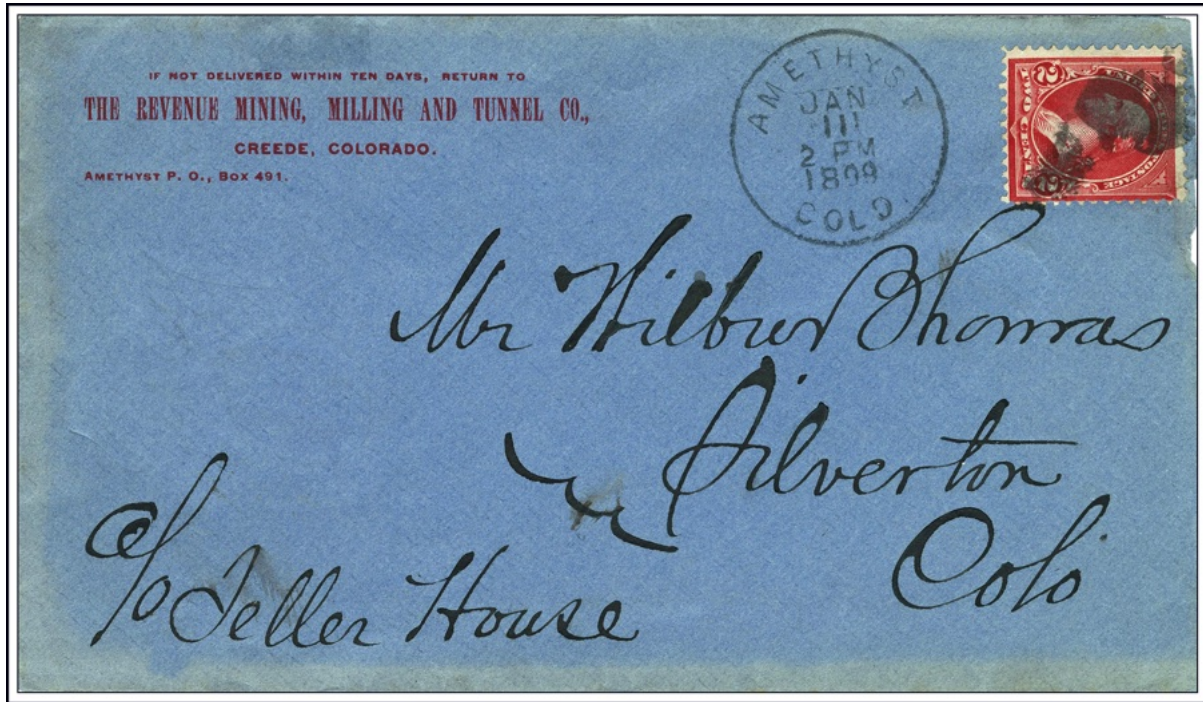 IF NOT DELIVERED WITHIN TEN DAYS, RETURN TO
THE REVENUE MINING, MILLING AND TUNNEL CO.,
CREEDE, COLORADO.
AMETHYST P. O., BOX 491.
AMETHYST
JAN
2 PM
1899
COLO.
TWO CENTS
POSTAGE
Mr Wilbur Thomas
Silverton
Colo
c/o Teller House